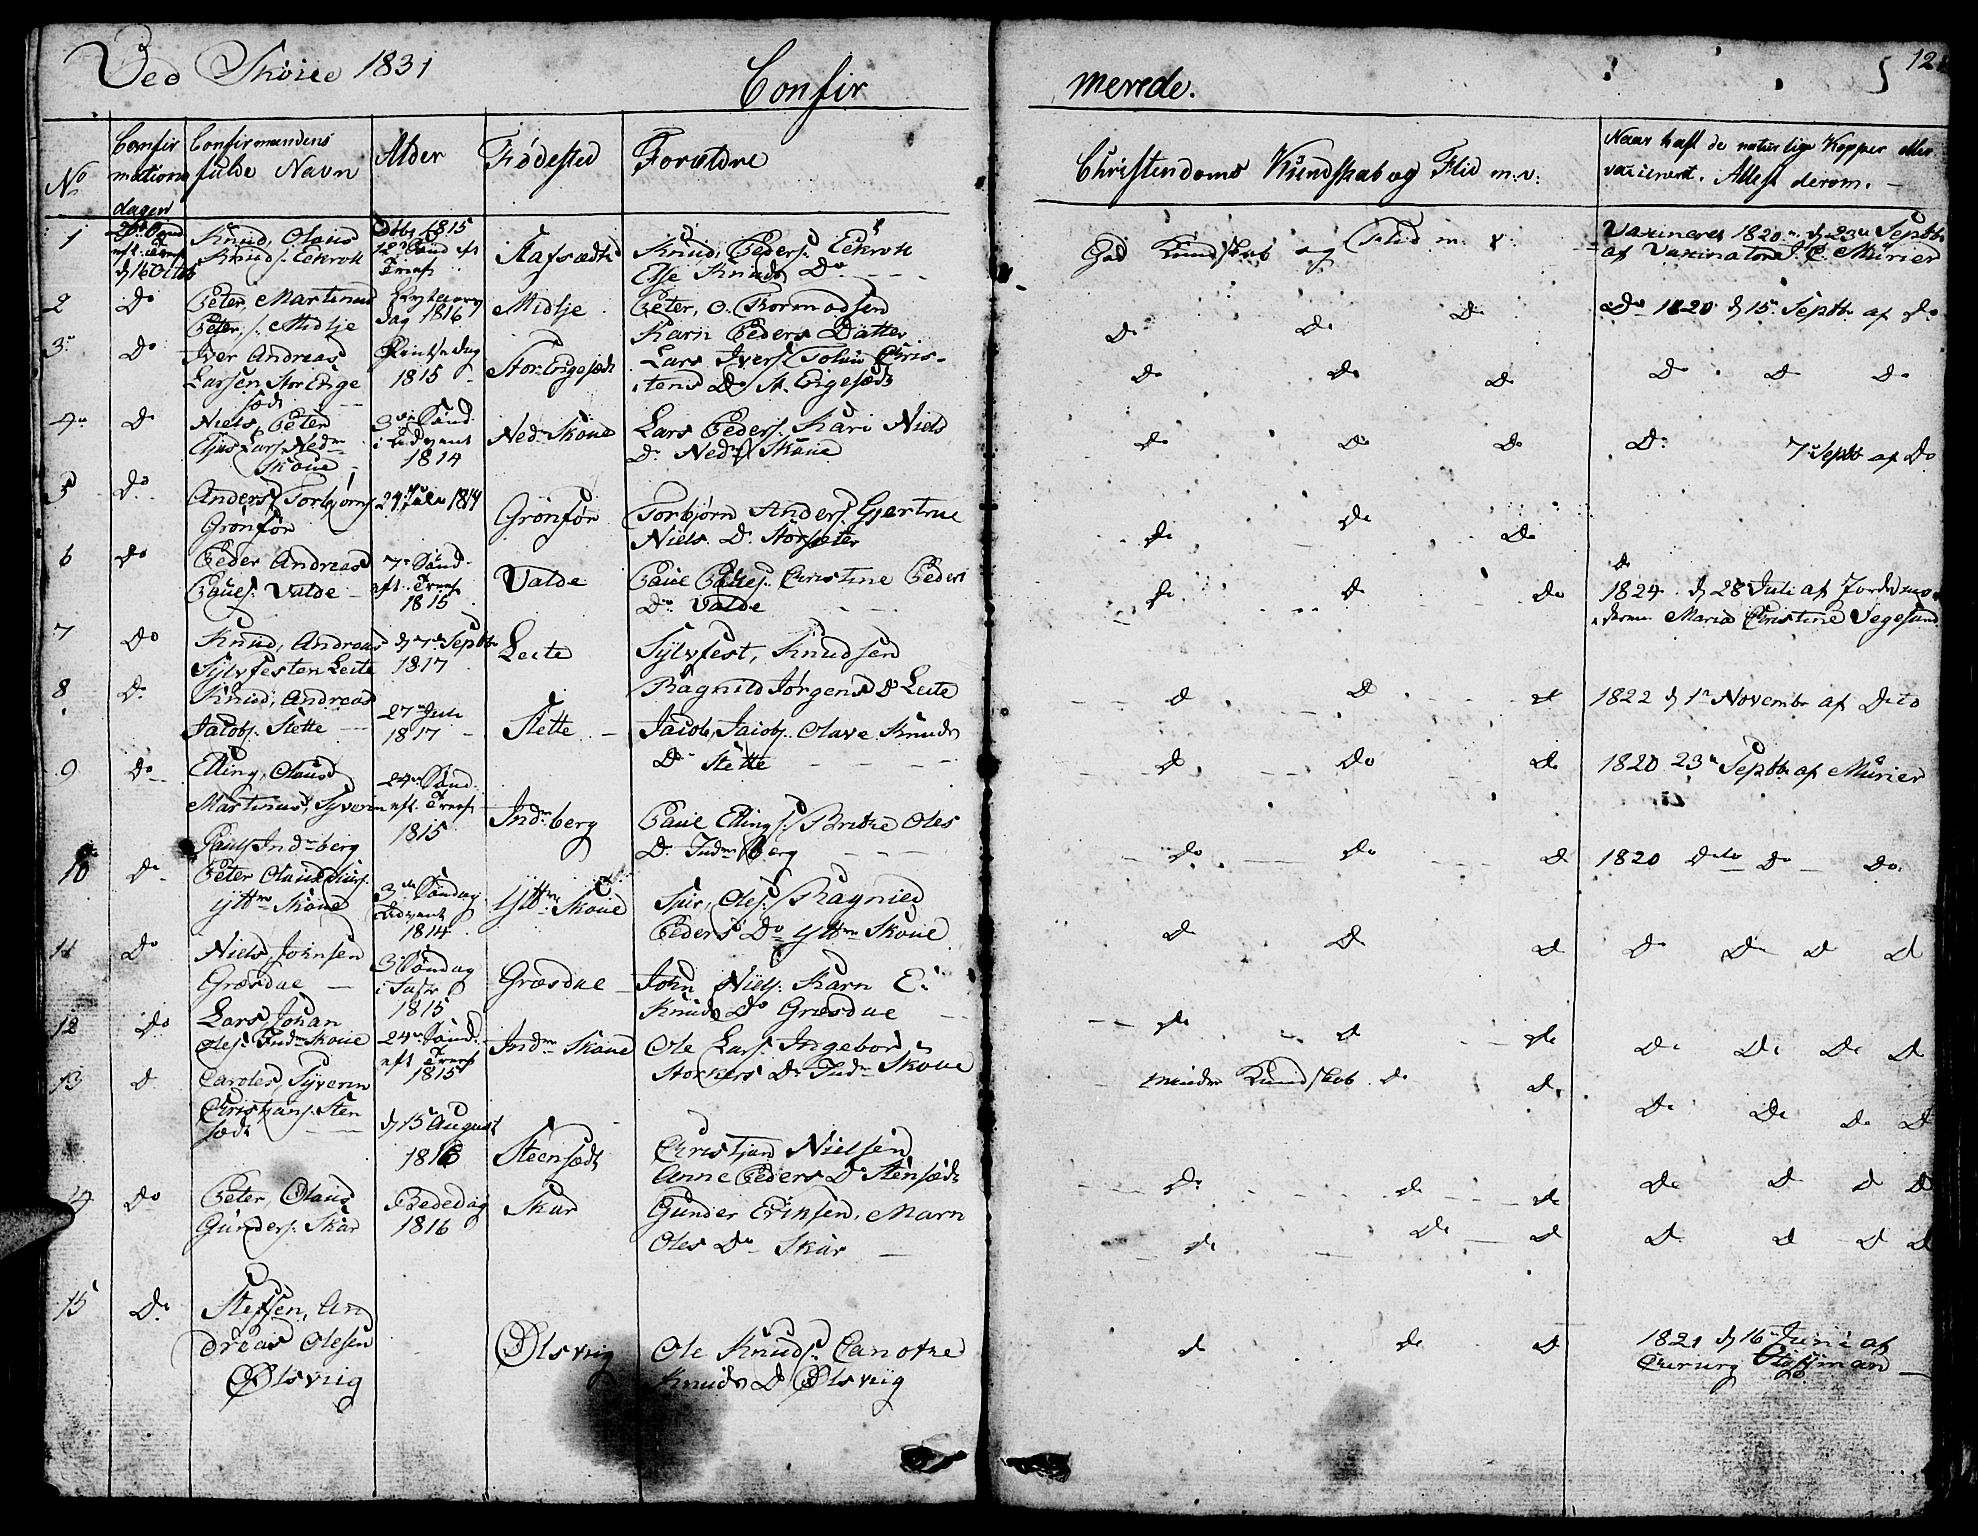 Ved Skoue 1831
Confir
merede.
12
No
Confir
mations
dagen
Confirmandens
fulde Navn
Alder
Fødested
Forældre
Christendoms Kundskab og Flid m. v.
Naar haft de naturlige Kopper eller
vaxineret. Attest derom.
1
Knud, Olaus
Knuds. Eekrok
Døbt 1815
Knud, Peders. Eekrok
Else Knuds Do
God Kundskab og Flid m. v.
Vaxineret 1820 d 23 Septbr
af Vaxinatør J. C. Mürier
2 Do
Peter, Martinus
Peter, s. Midtje
dag 1816
Midtje
Peter, O. Thormodsen
Karn Peders Datter
Do Do Do
Do 1820 d 15 Septbr af Do
3 Do
Iver Andreas
Larsen Stor Enge
sædt
Pintsedag
1815
Stor Engesædt
Lars Ivers.
Do Do Do
Do Do Do
4 Do
Niels, Peter
Lars. Nedre
Skoue
3 Sønd.
i Advent
1814
Nedre Skoue
Lars Peders. Kari Niels
Do Nedre Skoue
Do Do Do
Do 7 Septbr af Do
5 Do
Anders Torbjørns
Grønfør
24 Jule 1814
Grønfør
Torbjørn Anders. Gjertrue
Niels Do Storsæter
Do Do Do
6 Do
Peder Andreas
Pauels. Valde
7 Sønd.
eft. Tref
1815
Valde
Paul Pauls. Christine Peders
Do Valde
Do Do Do
Do
1824 d 28 Juli af Jordemo
dermo Maria Christine Segesund
7 Do
Knud, Andreas
Sylvfesten Leite
d 7 Septbr
1817
Leite
Sylvfest, Knudsen
Ragnild Jørgens D Leite
Do Do Do
1822 d 1 Novembr af Dito
8 Do
Knud, Andreas
Jacobs. Slette
27 Juli
1817
Slette
Jacob, Jacobs. Olave Knuds
Do Slette
Do Do Do
1820 23 Septbr af Mürier
9 Do
Elling, Olaus
Martinus, Syverin
Pauls Indreberg
24 Sønd.
eft. Tref
1815
Indreberg
Paul Ellings. Brithe Oles
D. Indreberg
Do Do Do
1820 dito Do Do
10 Do
Peter Olaus
Yttre Skoue
3 Søndag
i Advent
1814
Yttre Skoue
Oles. Ragnild
Peders Do Yttre Skoue
Do Do Do
Do Do Do Do
11 Do
Niels, Johnsen
Græsdue
3 Søndag
i Faste
1815
Græsdue
John Niels. Karn E.
Knuds Do Græsdue
Do Do Do
Do Do Do Do
12 Do
Lars Johan
Oles. Indre Skoue
24 Sønd.
eft Tref
1815
Indre Skoue
Ole Lars. Ingebor
Storkers Do Indre Skoue
mindre Kundskab Do Do
Do Do Do Do
13 D
Caroles Syverin
Christjans. Sten
sædt
d 15 August
1816
Steensædt
Christjan Nielsen
Anne Peders Do Stensædt
Do Do Do
Do Do Do Do
14 Do
Peter, Olaus
Gunders. Skar
Bededag
1816
Skar
Gunder Erinsen, Marn
Oles Do Skar
Do Do Do
Do Do Do Do
15 Do
Steffen, An
dreas Olesen
Ølsviig
Ølsviig
Ole Knuds. Canothe
Knuds D Ølsviig
Do Do Do
1821 d 16 Juni af
Cirurg